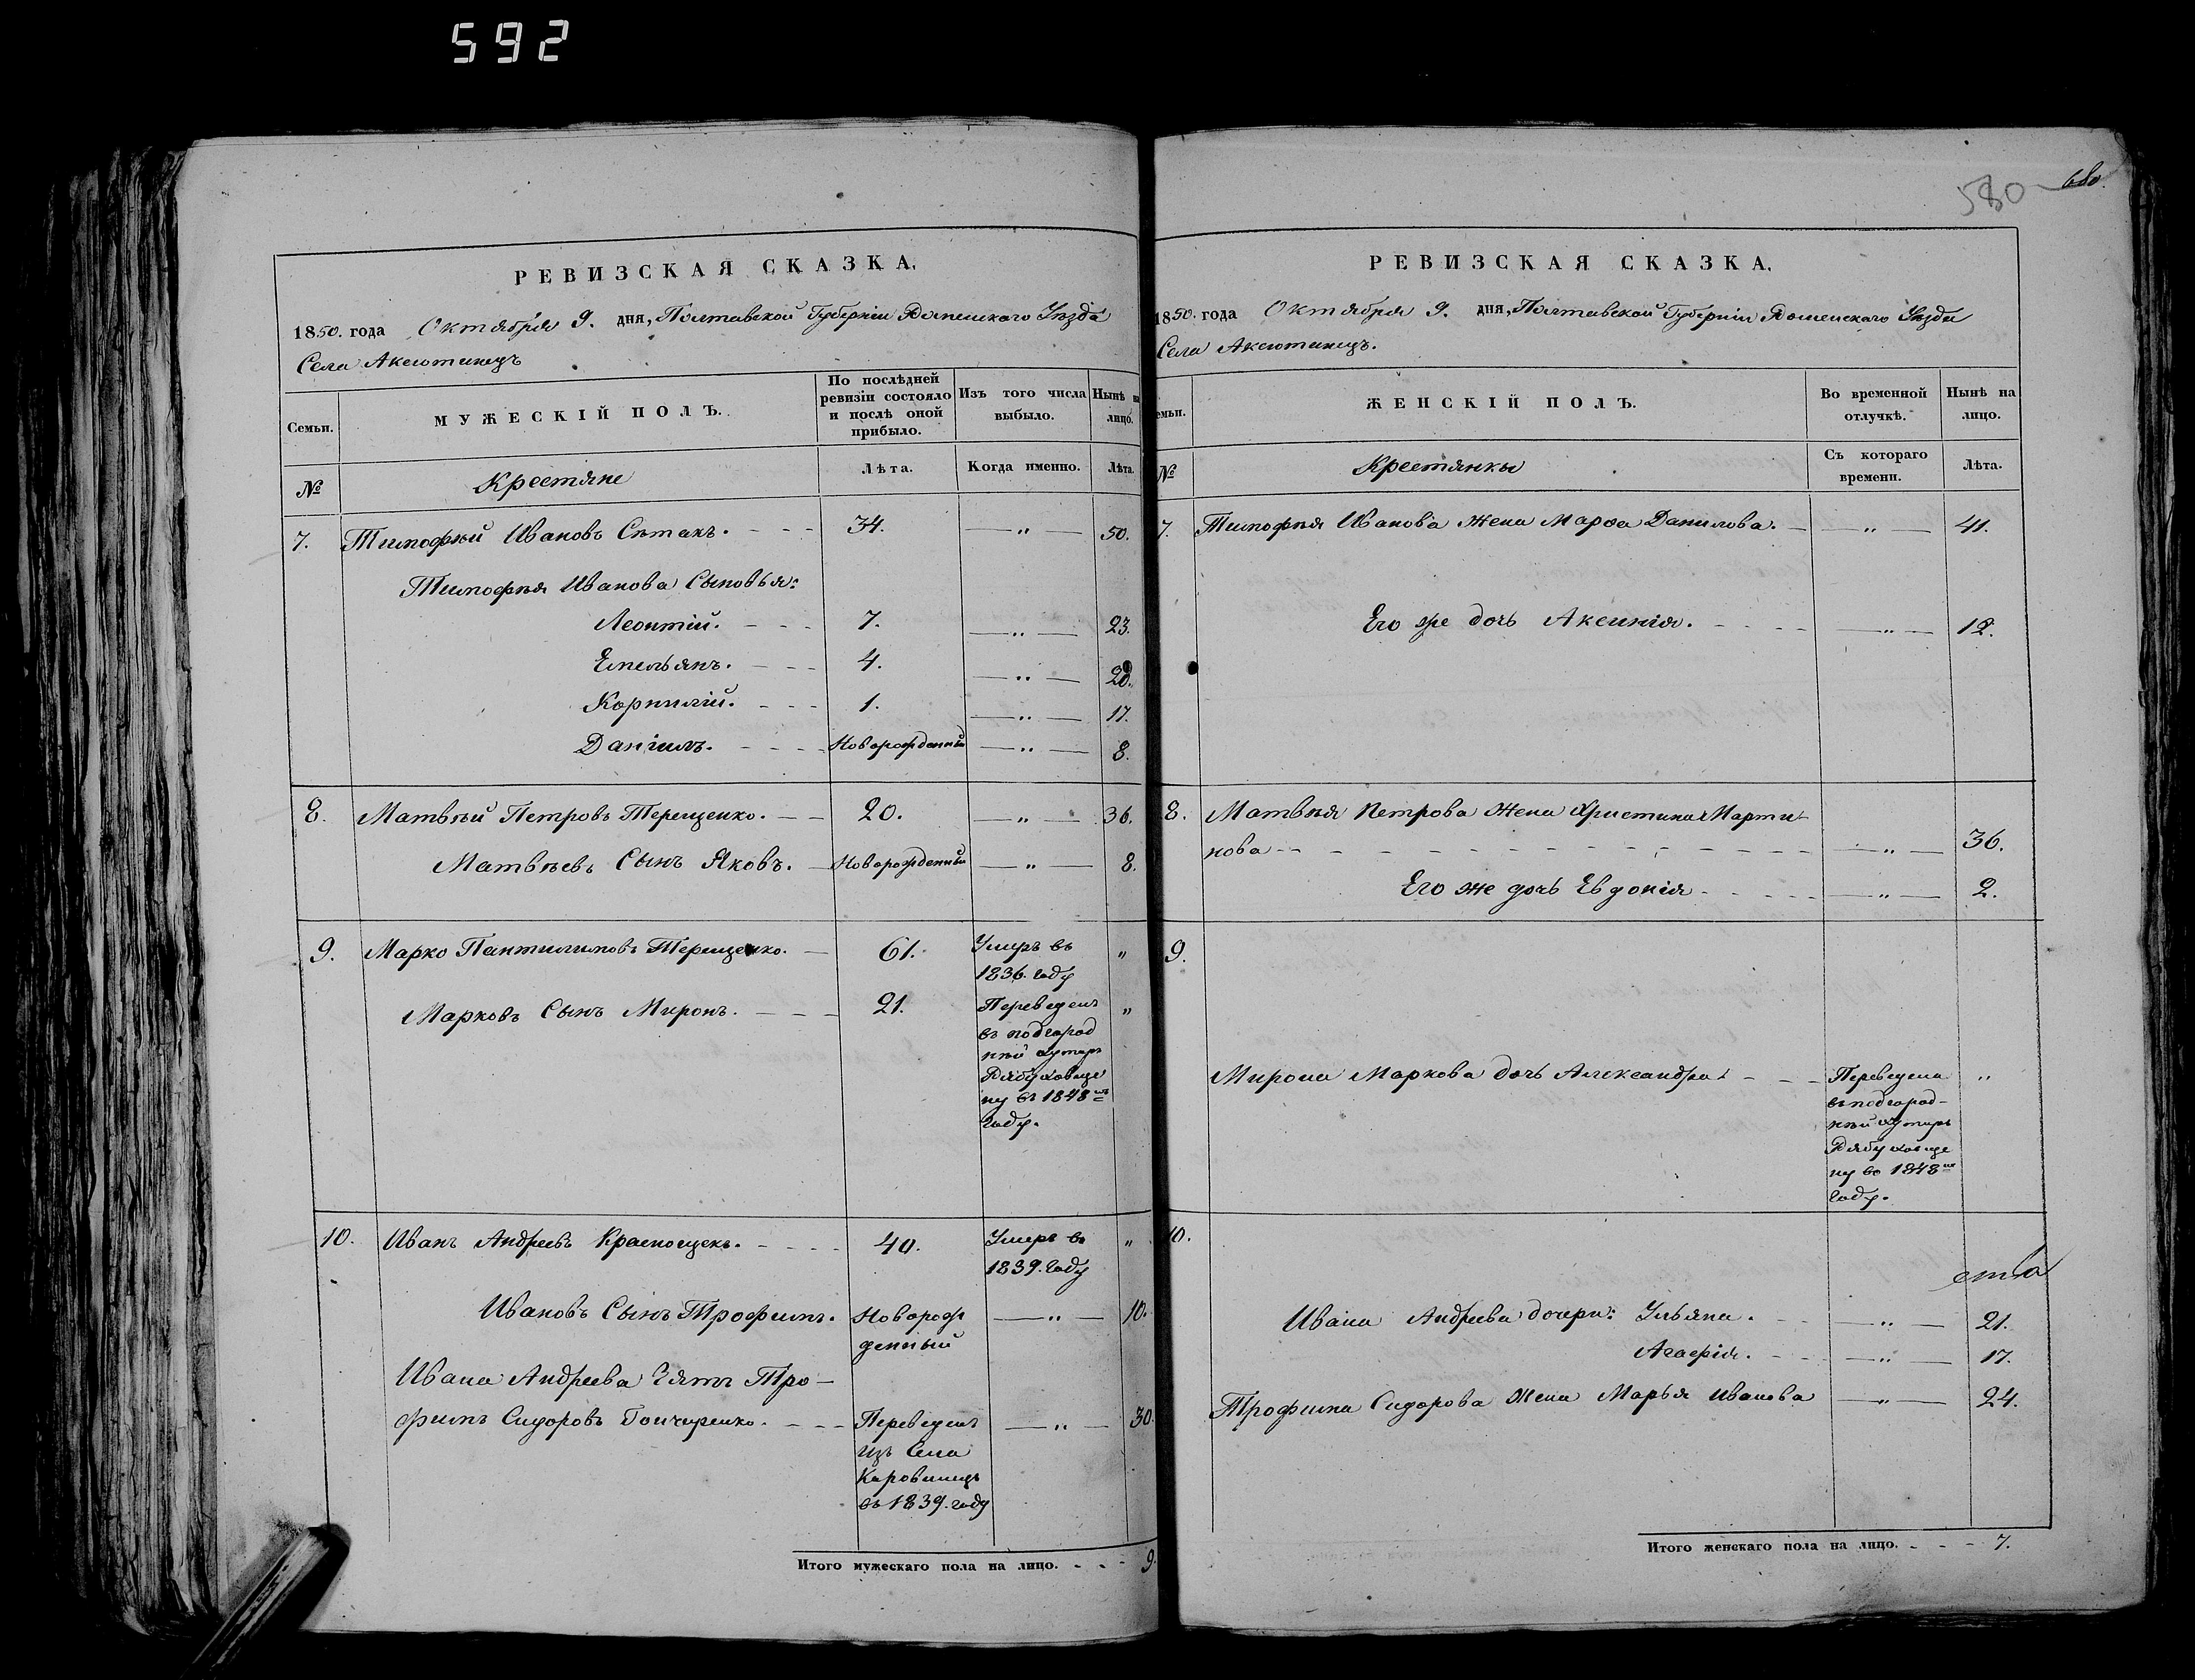 592
580 680.
РЕВИЗСКАЯ СКАЗКА.
1850. года Октября 9. дня, Полтавской Губерніи Роменскаго Уѣзда
Села Аксютинецъ
Семьи.
МУЖЕСКІЙ ПОЛЪ.
По послѣдней
ревизіи состояло
и послѣ оной
прибыло.
Изъ того числа
выбыло.
Нынѣ на
лицо.
№
Крестяне
Лѣта.
Когда именно.
Лѣта.
7. Тимофѣй Ивановъ Сѣтакъ. 34. — „ — 50.
Тимофѣя Иванова Сыновья:
Леонтій. 7. — „ — 23.
Емельянъ. 4. — „ — 20.
Корнилій. 1. — „ — 17.
Даніилъ. Новорожденный — „ — 8.
8. Матвѣй Петровъ Терещенко. 20. — „ — 36.
Матвѣевъ Сынъ Яковъ. Новорожденный — „ — 8.
9. Марко Пантилимовъ Терещенко. 61. Умеръ въ „
1836. году
Марковъ Сынъ Миронъ. 21. Переведенъ „
въ подгород
ній хуторъ
Рябуховще
ну въ 1848мъ
году.
10. Иванъ Андреевъ Краснощекъ. 40. Умеръ въ „
1839. году
Ивановъ Сынъ Трофимъ. Новорож — „ — 10.
денный
Ивана Андреева Зять Тро-
фимъ Сидоровъ Гончаренко. Переведенъ — „ — 30.
изъ Села
Коровинецъ
въ 1839. году
Итого мужескаго пола на лицо. - - - 9.
РЕВИЗСКАЯ СКАЗКА.
1850. года Октября 9. дня, Полтавской Губерніи Роменскаго Уѣзда
Села Аксютинецъ.
емьи.
ЖЕНСКІЙ ПОЛЪ.
Во временной
отлучкѣ.
Нынѣ на
лицо.
№
Крестянки
Съ котораго
времени.
Лѣта.
7. Тимофѣя Иванова Жена Марѳа Данилова. — „ — 41.
Его же дочь Аксинія. — „ — 12.
8. Матвѣя Петрова Жена Христина Марти-
нова — „ — 36.
Его же дочь Евдокія — „ — 2.
9.
Мирона Маркова дочь Александра Переведена „
въ подгород-
ній хуторъ
Рябуховще
ну въ 1848мъ
году.
10.
Ивана Андреева дочери: Ульяна. — „ — 21.
Агафія. — „ — 17.
Трофима Сидорова Жена Марья Иванова — „ — 24.
ства
Итого женскаго пола на лицо. - - - 7.